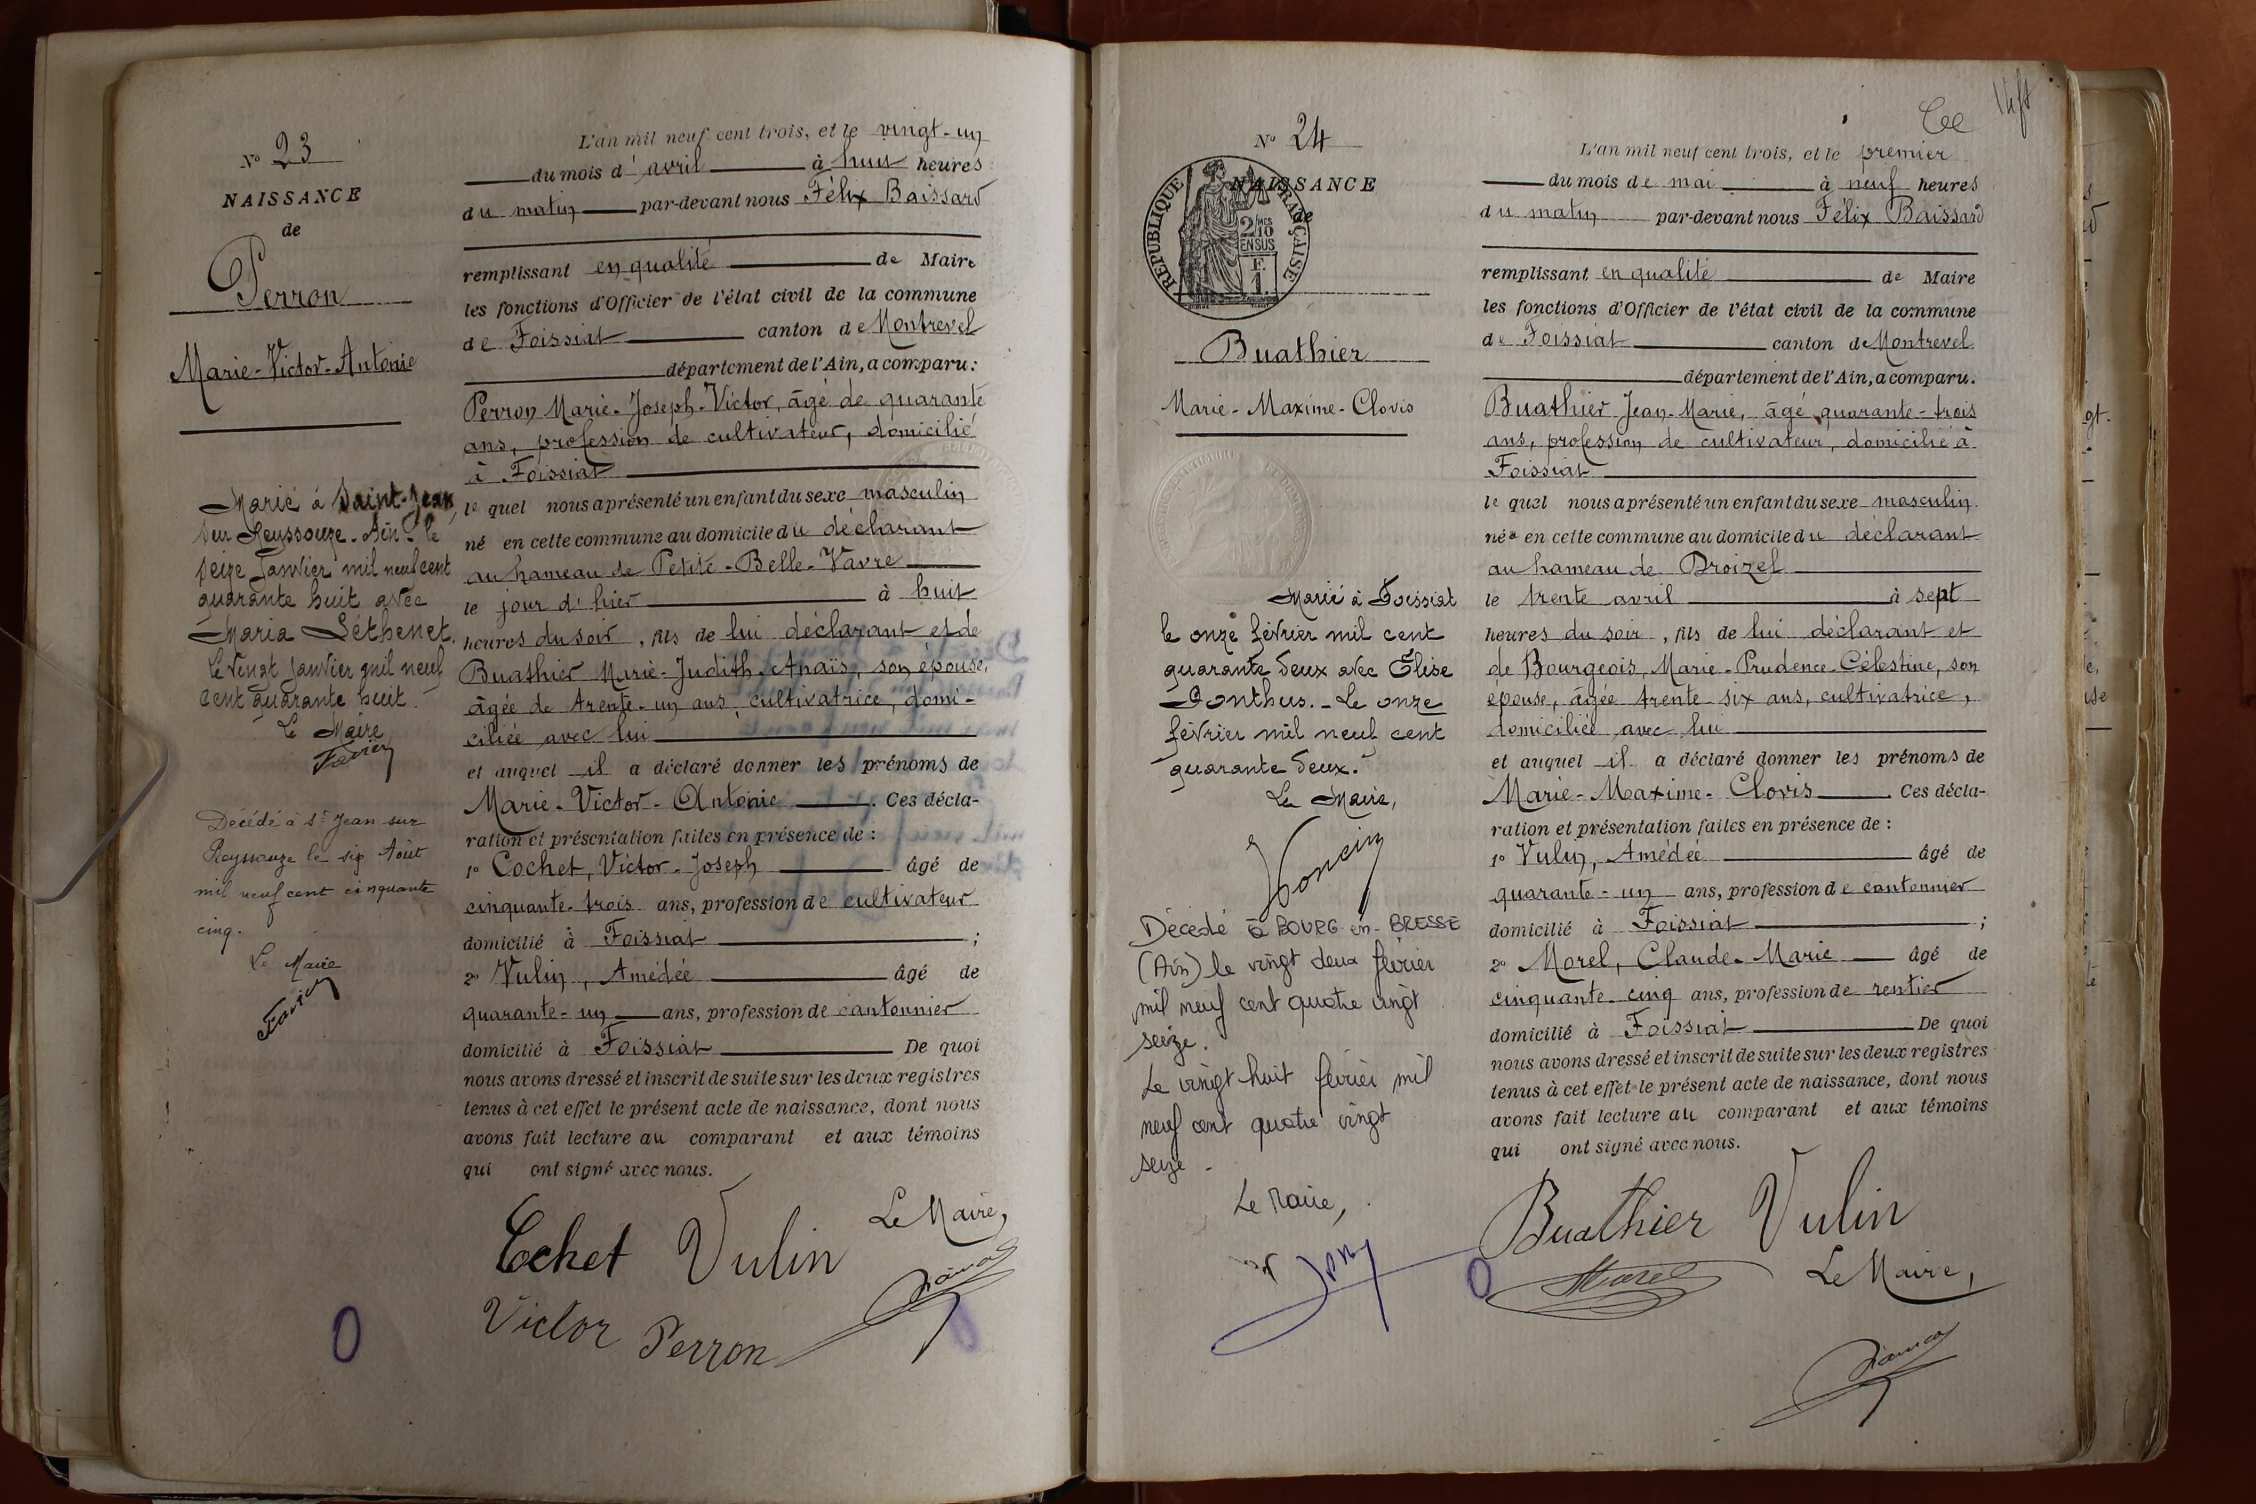 N° 23
NAISSANCE
de
Perron
Marie-Victor-Antonie
Marié à Saint-Jean
sur Reyssouze. Ain. le
seize Janvier mil neuf cent
quarante huit avec
Maria Léthenet.
Le vingt janvier mil neuf
cent quarante huit.
Le Maire
Favier
Décédé à St Jean sur
Reyssouze le six Août
mil neuf cent cinquante
cinq.
Le Maire
Favier
L'an mil neuf cent trois, et le vingt-un
du mois d'avril à huit heures
du matin par-devant nous Félix Baissard
remplissant en qualité de Maire
les fonctions d'Officier de l'état civil de la commune
de Foissiat canton de Montrevel
département de l'Ain, a comparu:
Perron Marie-Joseph-Victor, âgé de quarante
ans, profession de cultivateur, domicilié
à Foissiat
lequel nous a présenté un enfant du sexe masculin
né en cette commune au domicile du déclarant
au hameau de Petite-Belle-Vavre
le jour d'hier à huit
heures du soir, fils de lui déclarant et de
Buathier Marie-Judith-Anaïs, son épouse,
âgée de trente-un ans, cultivatrice, domi-
ciliée avec lui
et auquel il a déclaré donner les prénoms de
Marie-Victor-Antonie. Ces décla-
ration et présentation faites en présence de:
1° Cochet, Victor-Joseph âgé de
cinquante-trois ans, profession de cultivateur
domicilié à Foissiat ;
2° Vulin, Amédée âgé de
quarante-un ans, profession de cantonnier
domicilié à Foissiat De quoi
nous avons dressé et inscrit de suite sur les deux registres
tenus à cet effet le présent acte de naissance, dont nous
avons fait lecture au comparant et aux témoins
qui ont signé avec nous.
Cochet Vulin Le Maire,
Victor Perron
N° 24
NAISSANCE
de
RÉPUBLIQUE FRANÇAISE
2/10 EN SUS
F. 1.
Buathier
Marie-Maxime-Clovis
Marié à Foissiat
le onze février mil cent
quarante deux avec Elise
Gonthus. - Le onze
février mil neuf cent
quarante deux.
Le Maire,
Décédé à BOURG-en-BRESSE
(Ain) le vingt deux février
mil neuf cent quatre vingt
seize.
Le vingt-huit février mil
neuf cent quatre vingt
seize -
Le Maire,
L'an mil neuf cent trois, et le premier
du mois de mai à neuf heures
du matin par-devant nous Félix Baissard
remplissant en qualité de Maire
les fonctions d'Officier de l'état civil de la commune
de Foissiat canton de Montrevel
département de l'Ain, a comparu.
Buathier Jean-Marie, âgé quarante-trois
ans, profession de cultivateur, domicilié à
Foissiat
lequel nous a présenté un enfant du sexe masculin
né en cette commune au domicile du déclarant
au hameau de Broizel
le trente avril à sept
heures du soir, fils de lui déclarant et
de Bourgeois, Marie-Prudence-Célestine, son
épouse, âgée trente-six ans, cultivatrice,
domiciliée avec lui
et auquel il a déclaré donner les prénoms de
Marie-Maxime-Clovis. Ces décla-
ration et présentation faites en présence de:
1° Vulin, Amédée âgé de
quarante-un ans, profession de cantonnier
domicilié à Foissiat ;
2° Morel, Claude-Marie âgé de
cinquante-cinq ans, profession de rentier
domicilié à Foissiat De quoi
nous avons dressé et inscrit de suite sur les deux registres
tenus à cet effet le présent acte de naissance, dont nous
avons fait lecture au comparant et aux témoins
qui ont signé avec nous.
Buathier Vulin
Morel Le Maire,